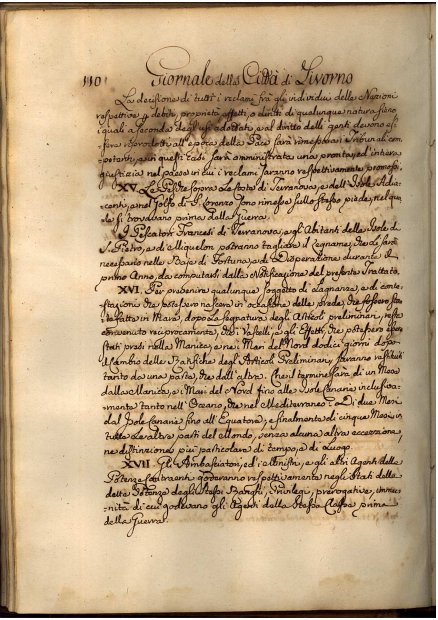 110 Giornale della Città di Livorno
La decisione di tutti i reclami frà gl'individui delle Nazioni
rispettive p debiti, proprietà, effetti, o diritti di qualunque natura siano
i quali a seconda degl'usi adottati, e al diritto delle genti devono es-
sere riprodotti all'epoca della Pace sarà rimessa ai Tribunali com-
petenti, e in questi casi sarà amministrata una pronta, ed intiera
giustizia nel paese in cui i reclami saranno respettivamente promossi.
XV. Le Pesche sopra le Coste di Terranova, e dell'Isole Adia-
centi, e nel Golfo di S. Lorenzo sono rimesse sullo stesso piede, nel qua-
le si trovavano prima della Guerra.
I Pescatori Francesi di Terranova, e gli Abitanti delle Isole di
S. Pietro, e di Miquelon potranno tagliare il legname, che li sarà
necessario nelle Baje di Fortuna, e di Disperazione durante il
primo Anno, da computarsi dalla Notificazione del presente Trattato.
XVI. Per prevenire qualunque soggetto di Lagnanza, e di conte-
stazioni che potessero nascere in occasione delle prede, che fossero sta-
te fatte in Mare, dopo la segnatura degli Articoli preliminari, resta
convenuto reciprocamente, che i Vascelli, e gli Effetti, che potessero essere
stati presi nella Manica, e nei Mari del Nord dodici giorni dopo
il Cambio delle Ratifiche degli Articoli Preliminari, saranno restituiti
tanto da una parte, che dall'altra. Che il termine sarà di un Mese
dalla Manica, e i Mari del Nord fino alle Isole Canarie inclusiva-
mente tanto nell'Oceano, che nel Mediterraneo: Di due Mesi
dal Isole Canarie fino all'Equatore, e finalmente di cinque Mesi in
tutte le altre parti del Mondo, senza alcuna altra eccezione,
ne distinzione più particolare di tempo, e di Luogo.
XVII. Gli Ambasciatori, ed i Ministri, e gli altri Agenti delle
Potenze contraenti goderanno respettivamente negli Stati delle
dette Potenze degli stessi Ranghi, Privilegi, prerogative, immu-
nità di cui godevano gli Agenti della stessa Classe prima
della Guerra.